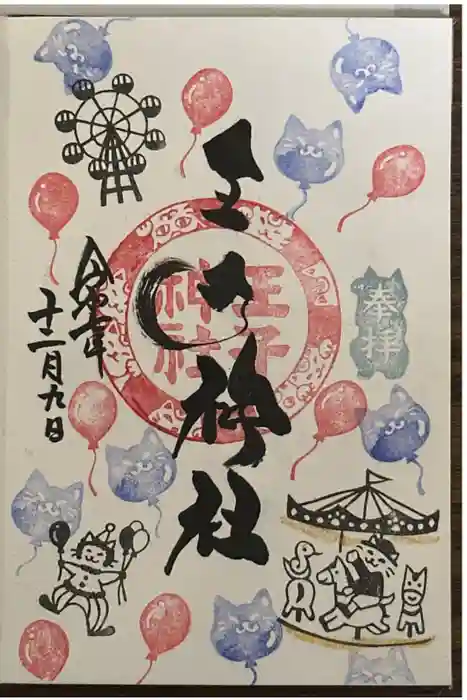 奉拝
王子神社
王子
神社
令和
十二月九日